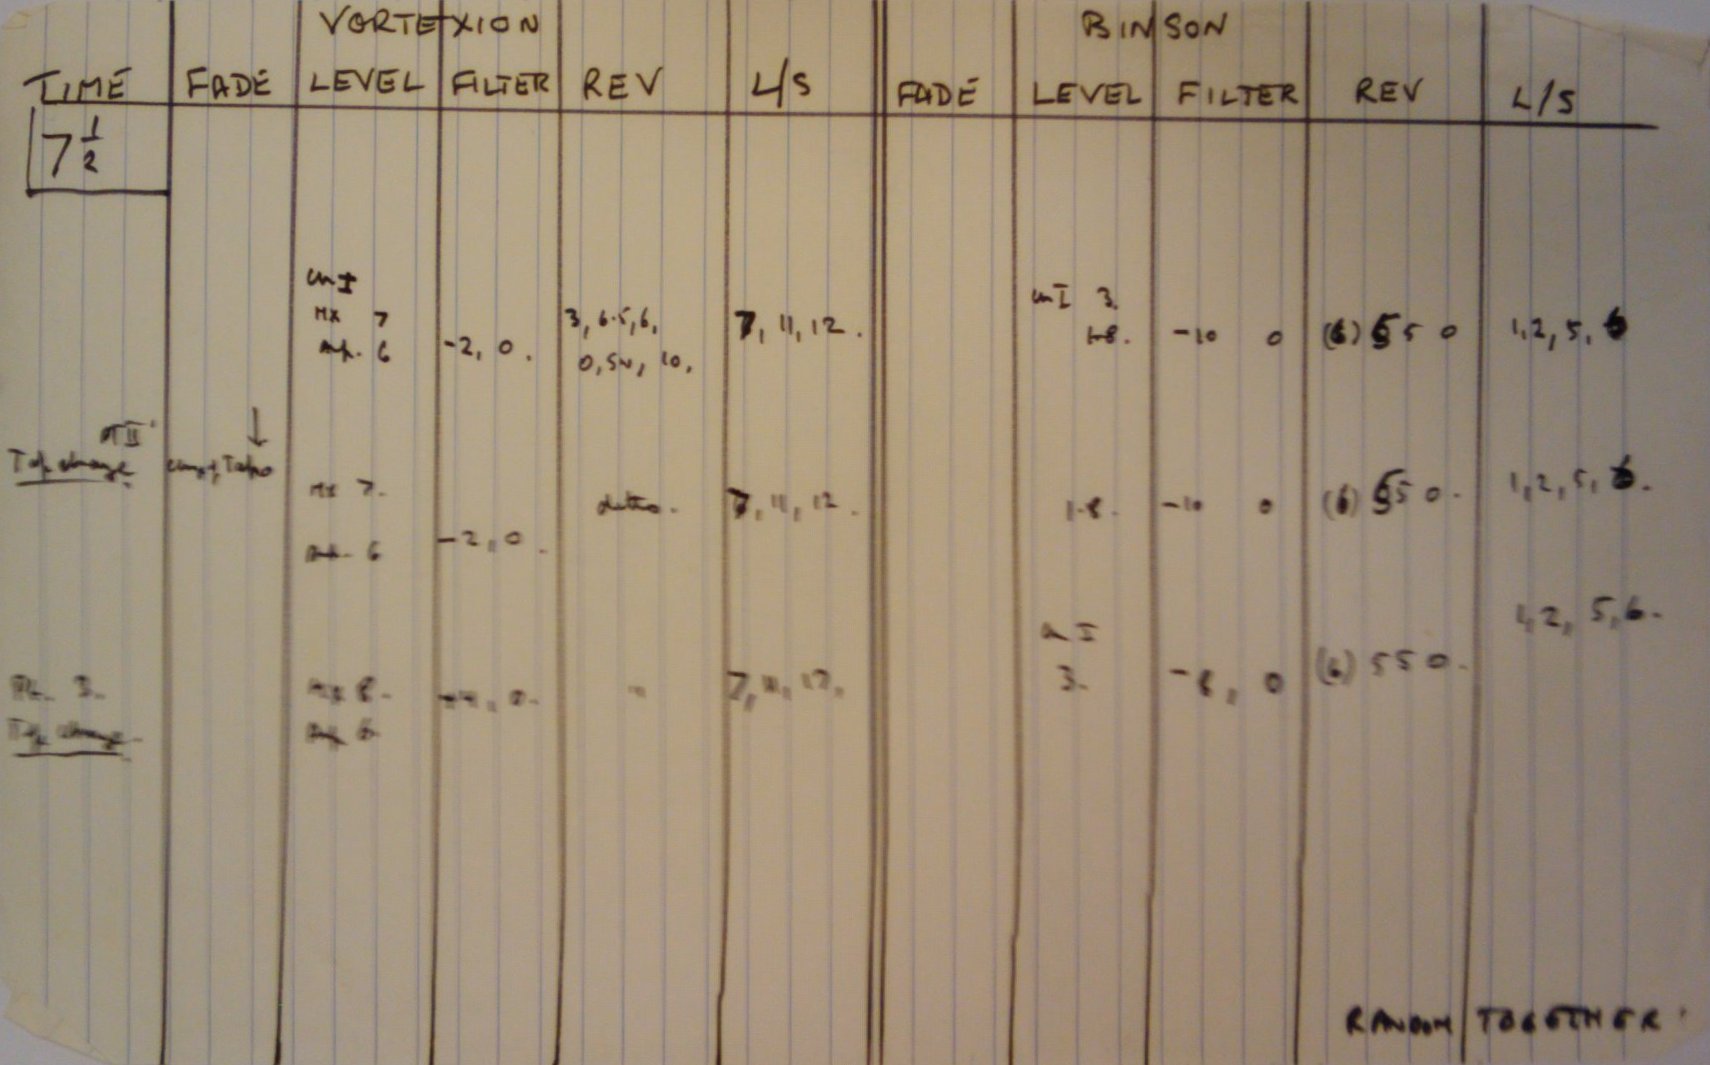 VORTEXION BINSON
TIME FADE LEVEL FILTER REV L/S FADE LEVEL FILTER REV L/S
7 1/2
ch I
MX 7
Amp. 6
-2, 0.
3, 6.5, 6,
0, SW, 10,
7, 11, 12.
ch I 3.
1-8.
-10 0
(6) 5 5 0
1, 2, 5, 6
PT II
Tape change
↓
MX 7.
Amp. 6
-2, 0.
ditto.
7, 11, 12.
1-8.
-10 0
(6) 5 5 0.
1, 2, 5, 6.
Pt. 3.
Tape change.
MX 8.
Amp 6
"
7, 11, 12,
ch I
3.
-8, 0
(6) 5 5 0.
1, 2, 5, 6.
RANDOM TOGETHER